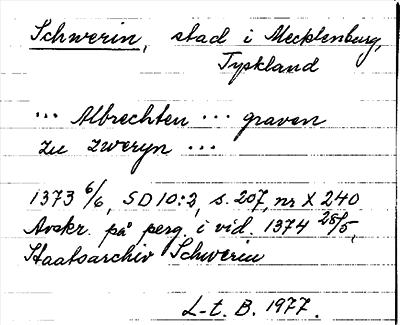 Schwerin, stad i Mecklenburg,
Tyskland
... Albrechten ... graven
zu zweryn ...
1373 6/6, SD 10:2, s. 207, nr X 240.
Avskr. på perg. i vid. 1374 28/5,
Staatsarchiv Schwerin
L-t. B. 1977.